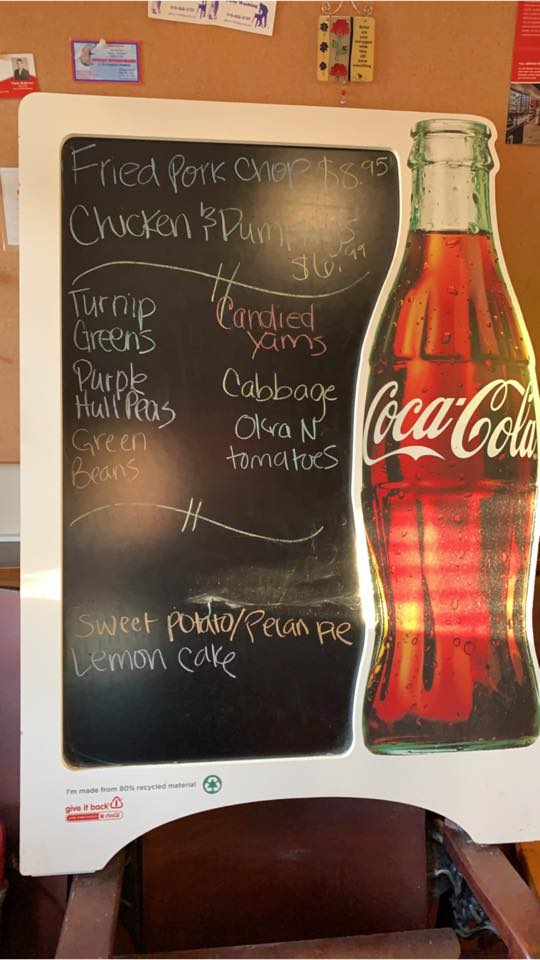 Fried Pork Chop $8.95
Chicken & Dumplings
$6.99
Turnip
Greens
Candied
Yams
Purple
Hull Peas
Cabbage
Green
Beans
Okra N
tomatoes
Sweet potato/Pecan Pie
Lemon Cake
Coca-Cola
I'm made from 80% recycled material
give it back